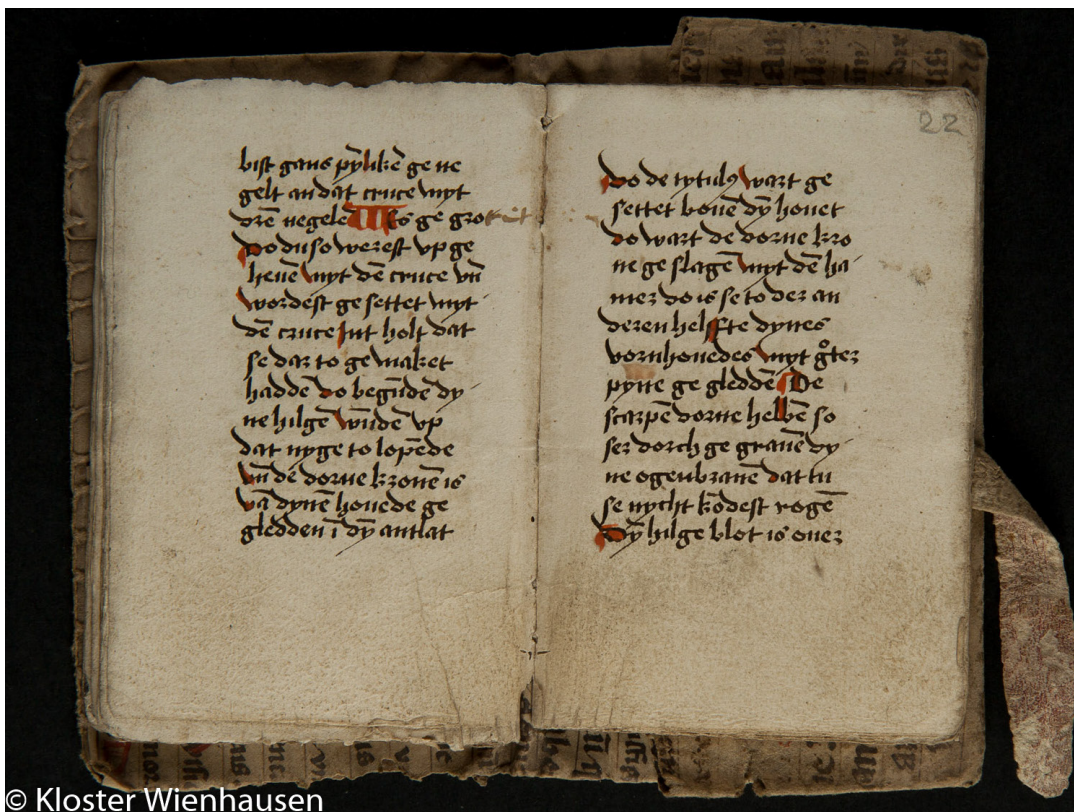 bist gans pȳlikē ge ne
gelt an dat cruce myt
drē negelē Wes ge grotet
Do du so werest vp ge
heuē myt dē cruce vn̄
wordest ge settet myt
dē cruce jnt holt dat
se dar to ge maket
haddē do begūdē dy
ne hilgē wūdē vp
dat nyge to lopēde
vn̄ de dorne kronē is
vā dynē houede ge
gledden ī dȳ antlat
22
Do de tytulꝯ wart ge
settet bouē dȳ houet
do wart de dorne kro
ne ge slagē myt dē ha
mer do is se to der an
deren helffte dynes
vornhouedes myt goͤter
pyne ge gleddē De
scarpē dorne hebbē so
ser dorch ge grauē dy
ne ogenbranē dat tu
se nycht kōdest rogē
Dȳ hilge blot is ouer
© Kloster Wienhausen